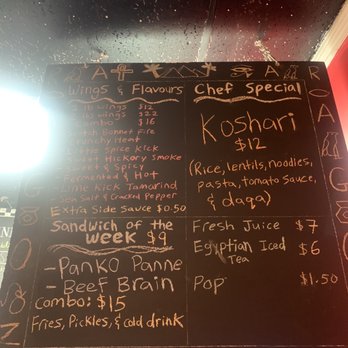 Wings & Flavours
lb wings $12
lbs wings $22
Combo $16
Bonnet Fire
Heat
Spice Kick
Sweet Hickory Smoke
& Spicy
Fermented & Hot
Lime Kick Tamarind
Sea Salt & Cracked Pepper
Extra Side Sauce $0.50
Sandwich of the
week $9
- Panko Panne
- Beef Brain
Combo: $15
Fries, Pickles, & cold drink
Chef Special
Koshari
$12
(Rice, lentils, noodles,
pasta, tomato sauce,
& daqa)
Fresh Juice $7
Egyptian Iced $6
Tea
Pop $1.50